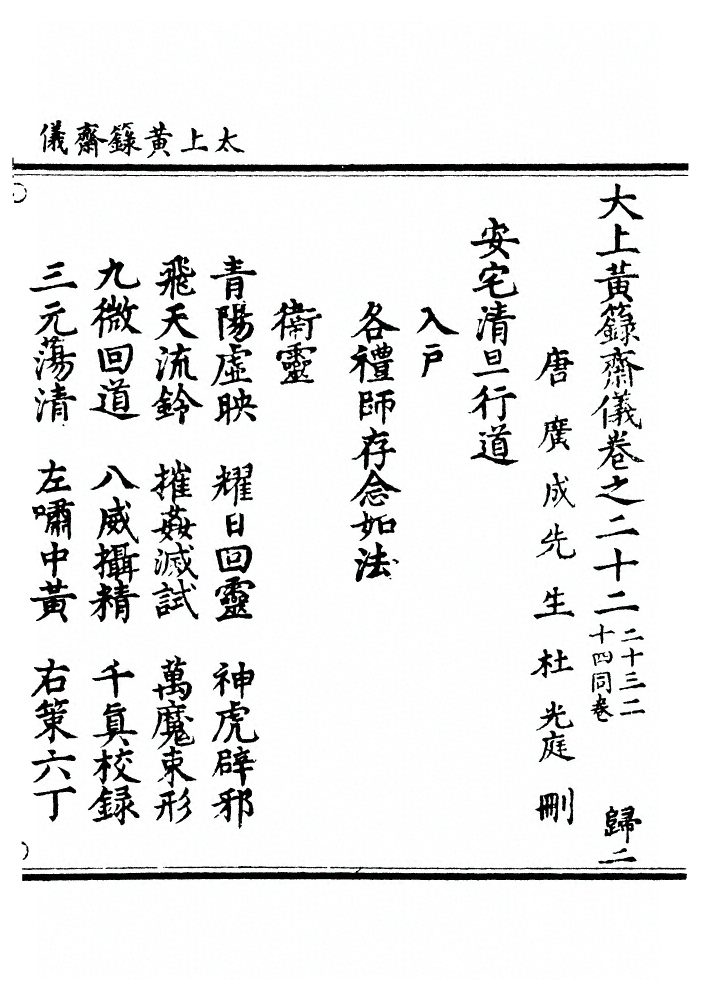 太上黃籙齋儀
大上黃籙齋儀卷之二十二 二十三二十四同卷 歸二
唐廣成先生杜光庭刪
安宅清旦行道
入戶
各禮師存念如法
衛靈
青陽虛映 耀日回靈 神虎辟邪
飛天流鈴 摧姦滅試 萬魔束形
九微回道 八威攝精 千真校録
三元蕩清 左嘯中黃 右策六丁